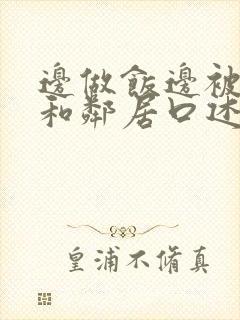 邊做飯邊被
和鄰居口述
皇浦不脩真